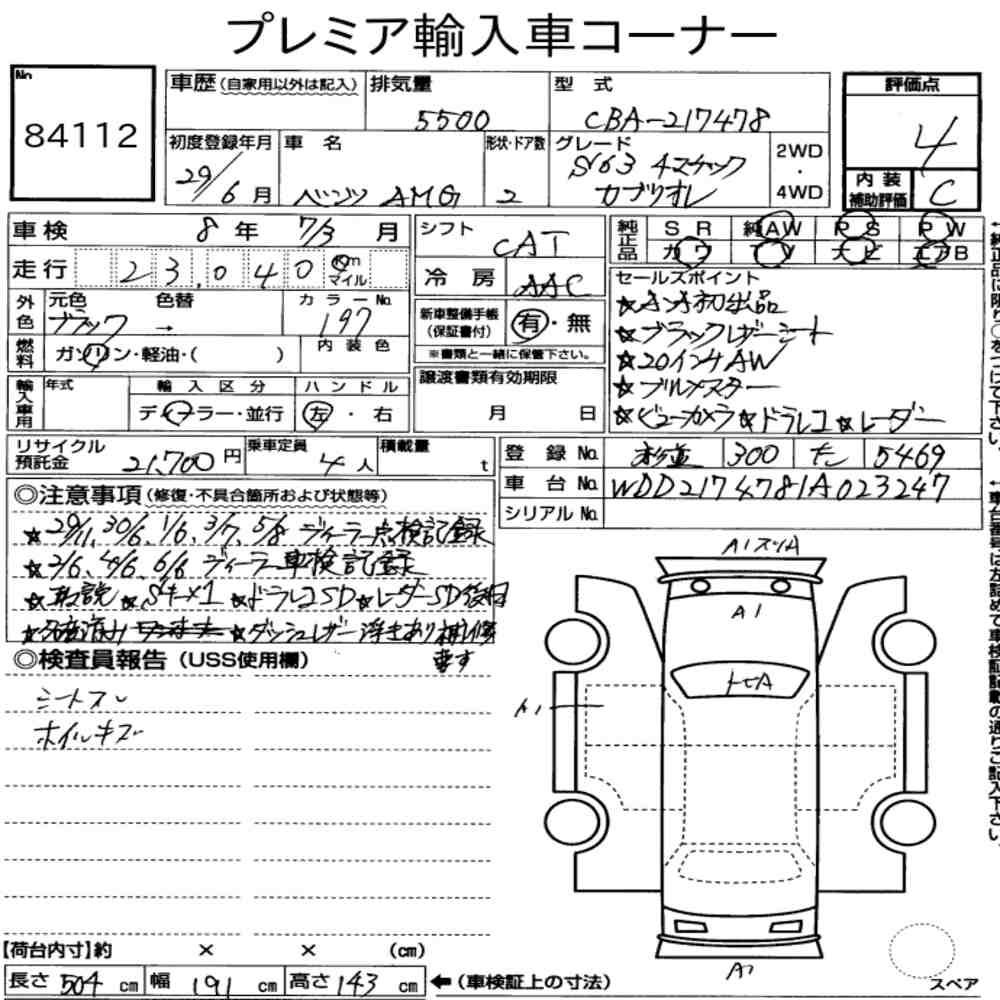 プレミア輸入車コーナー
No 84112
車歴(自家用以外は記入) 排気量 5500 型式 CBA-217478
初度登録年月 29/6月 車名 ベンツ AMG 形状・ドア数 2 グレード S63 4マチック カブリオレ 2WD・4WD
評価点 4
内装補助評価 C
車検 8年 7/3月
走行 23,040 Km マイル
外色 元色 ブラック 色替 → カラーNo. 197
燃料 ガソリン・軽油・( ) 内装色
輸入車用 年式 輸入区分 ディーラー・並行 ハンドル 左・右
リサイクル預託金 21,700円 乗車定員 4人 積載量 t
シフト CAT
冷房 AAC
新車整備手帳(保証書付) 有・無
※書類と一緒に保管下さい。
譲渡書類有効期限
月 日
純正品 SR 純AW PS PW
カワ TV ナビ エアB
セールスポイント
★ブラックレザーシート
★20インチAW
★ブルメスター
★ビューカメラ★ドラレコ★レーダー
登録No. 杉並 300 5469
車台No. WDD2174781A023247
シリアルNo.
◎注意事項(修復・不具合箇所および状態等)
★29/11, 30/6, 1/6, 3/7, 5/8 ディーラー点検記録
★2/6, 4/6, 6/6 ディーラー車検記録
★取説★Sキー×1★ドラレコSD★レーダーSD後日
★ダッシュレザー浮きあり補修
ます
◎検査員報告(USS使用欄)
シートスレ
ホイルキズ
A1スリA
A1
トビA
A1
A1
【荷台内寸】約 × × (cm)
長さ 504 cm 幅 191 cm 高さ 143 cm ←(車検証上の寸法)
スペア